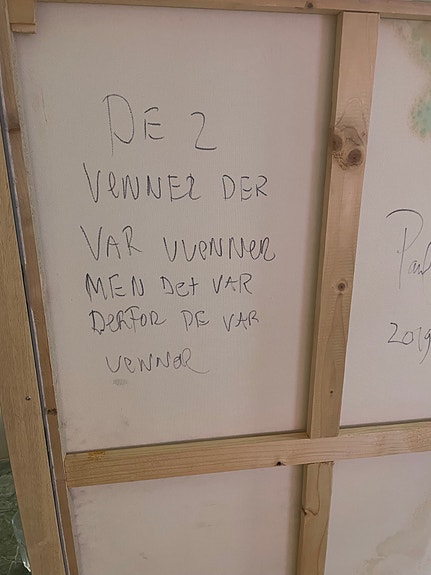 DE 2
VENNER DER
VAR UVENNER
MEN DET VAR
DERFOR DE VAR
VENNER
Paul
2019